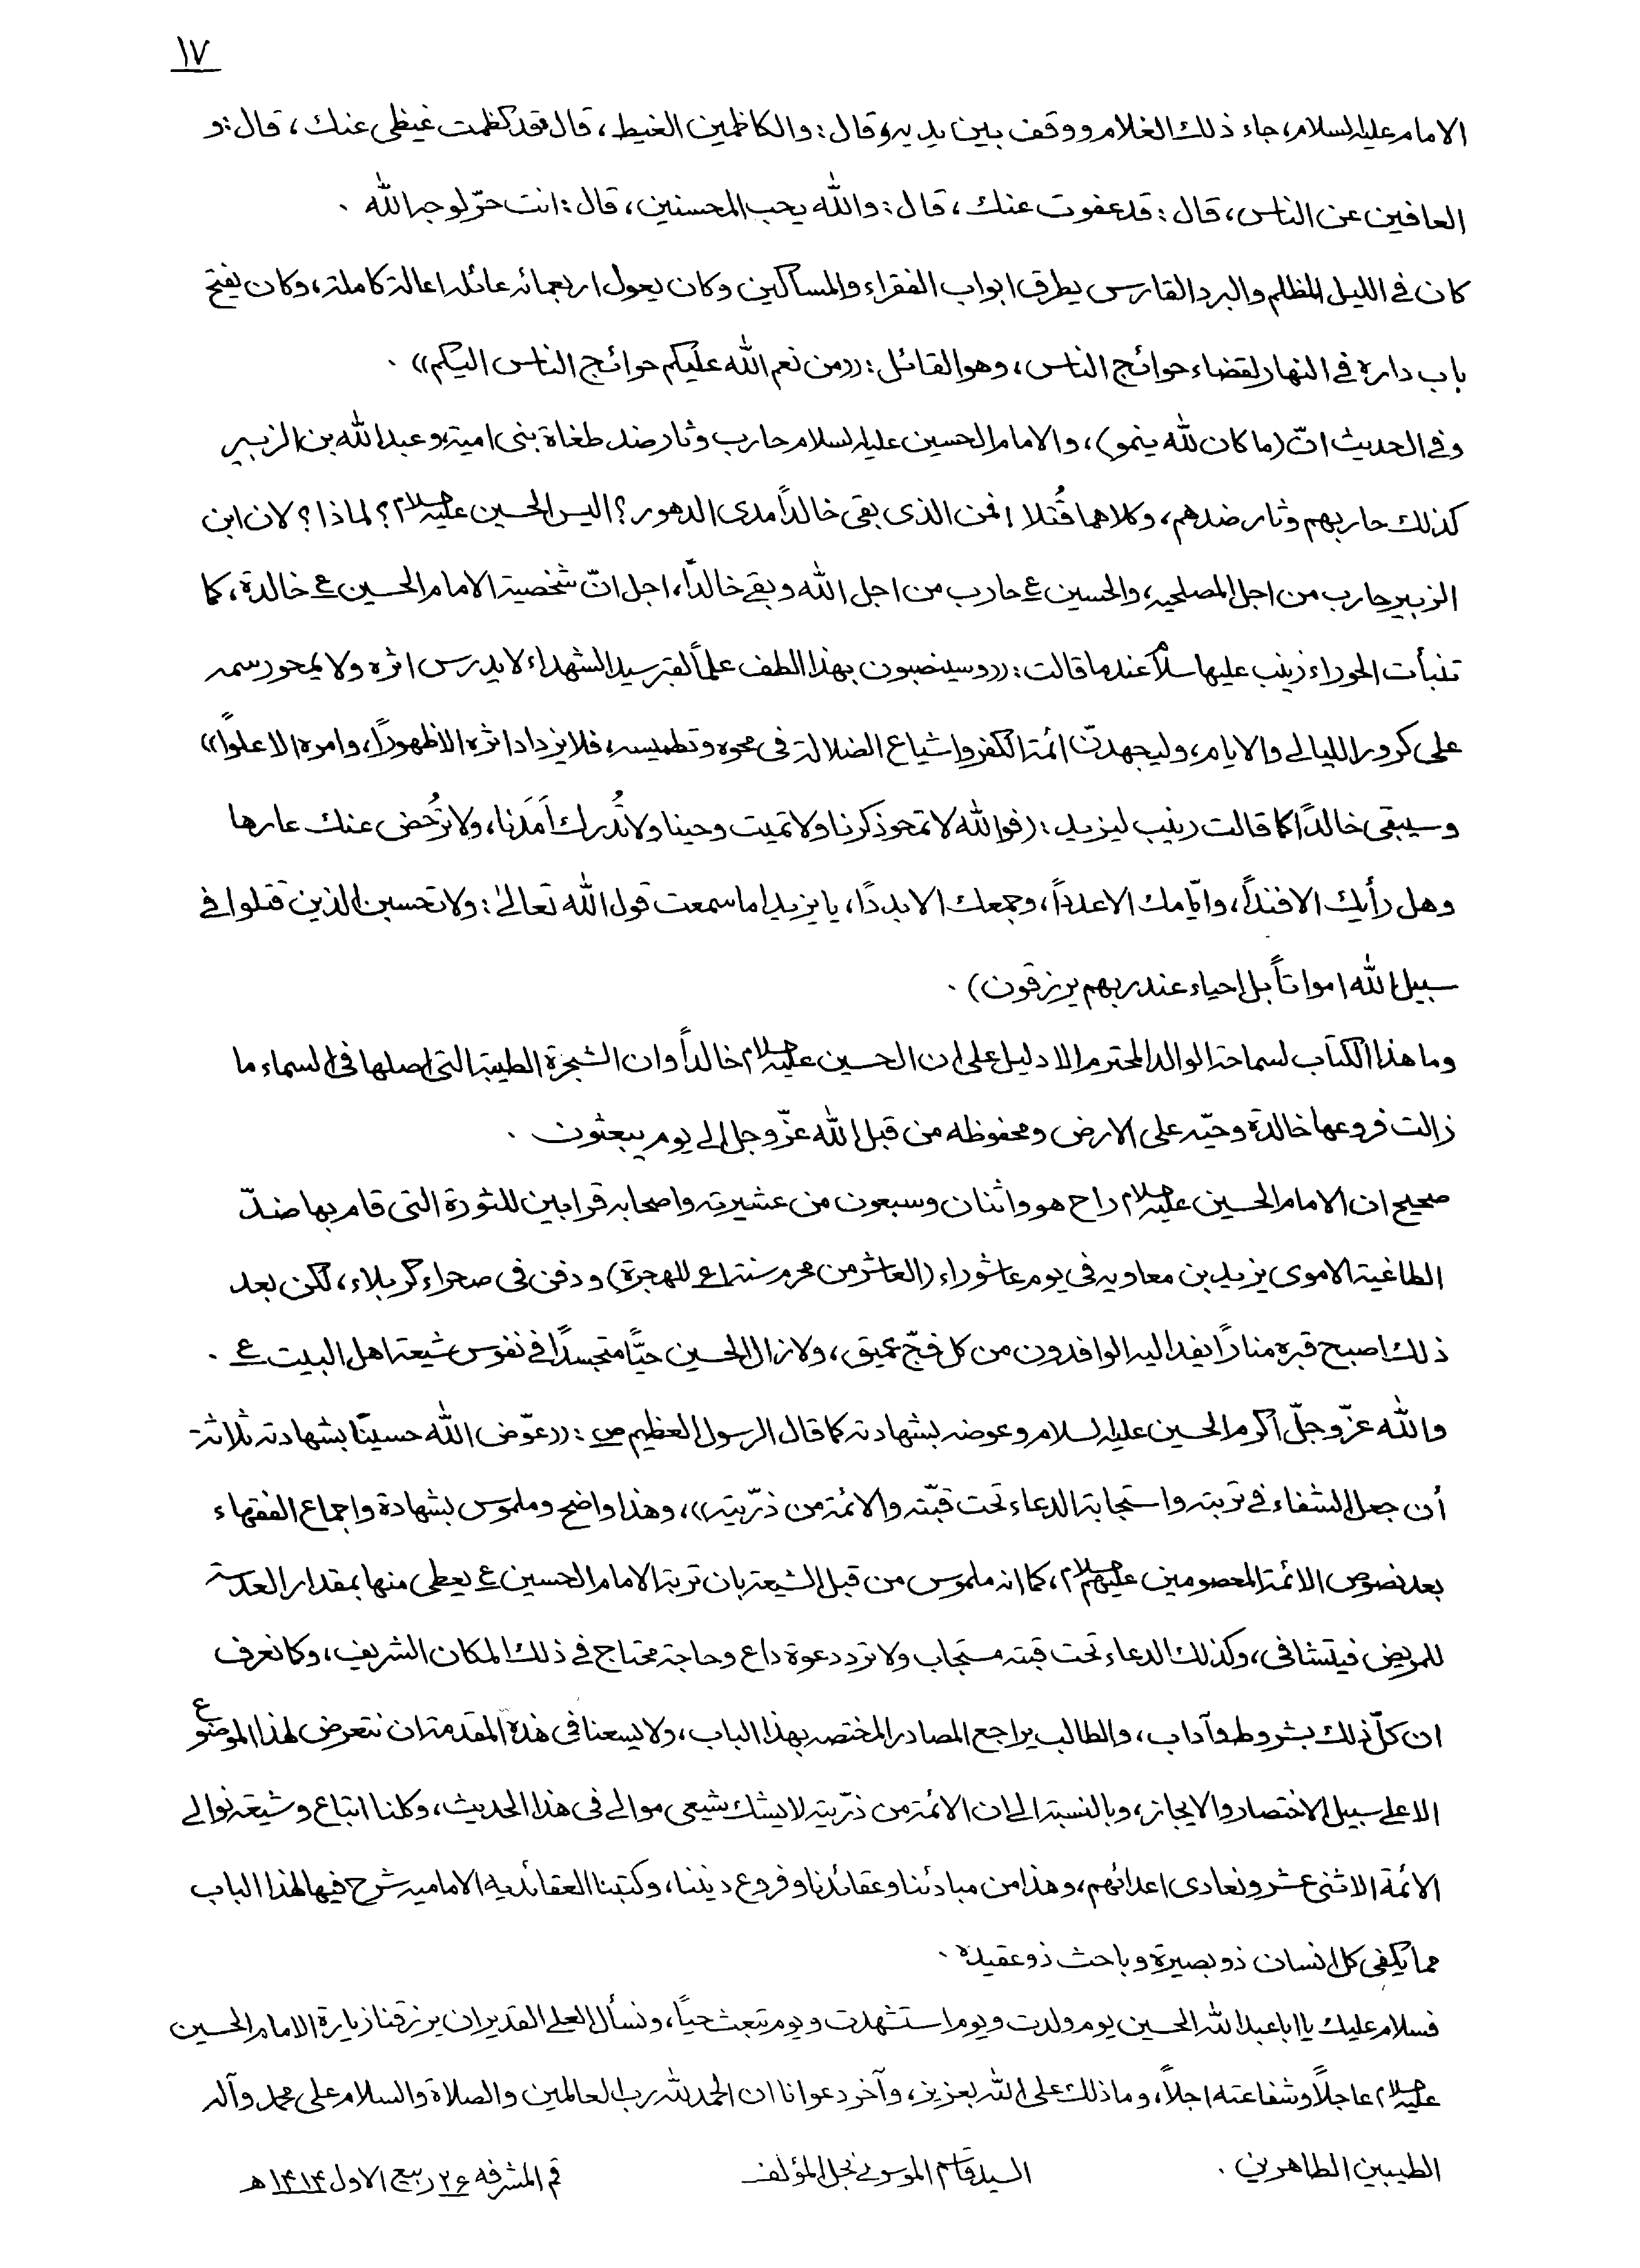 ١٧
الامام عليه السلام، جاء ذلك الغلام ووقف بين يديه وقال: والكاظمين الغيط، قال فقد كظمت غيظى عنك، قال: و
العافين عن الناس، قال: قد عفوت عنك، قال: والله يحب المحسنين، قال: انت حرّ لوجه الله .
كان في الليل المظلم والبرد القارس يطرق ابواب الفقراء والمساكين وكان يعول اربعمائه عائله اعالة كاملة، وكان يفتح
باب داره في النهار لقضاء حوائج الناس، وهو القائل: ((ومن نعم الله عليكم حوائج الناس اليكم)) .
وفي الحديث انّ (ما كان لله ينمو)، والامام الحسين عليه السلام حارب وثار ضد طغاة بنى امية، وعبد الله بن الزبير
كذلك حاربهم وثار ضدهم، وكلاهما قُتلا، فمن الذى بقى خالداً مدى الدهور؟ اليس الحسين عليه السلام؟ لماذا؟ لان ابن
الزبير حارب من اجل المصلحيه، والحسين ع حارب من اجل الله وبقي خالداً، اجل انّ شخصية الامام الحسين ع خالدة، كما
تنبأت الحوراء زينب عليها سلام عندما قالت: ((وسينصبون بهذا الطف علماً لقبر سيد الشهداء لا يدرس اثره ولا يمحو رسمه
على كرور الليالي والايام، وليجهدنّ ائمة الكفر واشياع الضلالة فى محوه وتطميسه، فلا يزداد اثره الا ظهوراً، وامره الا علواً))
وسيبقى خالداً كما قالت زينب ليزيد: (فوالله لا تمحو ذكرنا ولا تميت وحينا ولا تُدرك اَمَدَنا، ولا تُرحض عنك عارها
وهل رأيك الا فنداً، وايّامك الا عدداً، وجمعك الا بددًا، يا يزيد اما سمعت قول الله تعالى: ولا تحسبن الذين قتلوا في
سبيل الله امواتاً بل احياء عند ربهم يرزقون) .
وما هذا الكتاب لسماحة الوالد المحترم الا دليل على ان الحسين عليه السلام خالداً وان الشجرة الطيبة التى اصلها فى السماء ما
زالت فروعها خالدة وحيّه على الارض ومحفوظه من قبل الله عزّ وجل الى يوم يبعثون .
صحيح ان الامام الحسين عليه السلام راح هو واثنان وسبعون من عشيرته واصحابه قرابين للثورة التى قام بها ضدّ
الطاغية الاموى يزيد بن معاويه فى يوم عاشوراء (العاشر من محرم سنة ٦١ للهجرة) ودفن فى صحراء كربلاء، لكن بعد
ذلك اصبح قبره منارًا يفد اليه الوافدون من كل فجّ عميق، ولا زال الحسين حيًّا متجسدًا في نفوس شيعة اهل البيت ع .
والله عزّ وجلّ اكرم الحسين عليه السلام وعوضه بشهادته كما قال الرسول العظيم ص: ((عوّض الله حسينًا بشهادته ثلاثة
أن جعل الشفاء في تربته واستجابة الدعاء تحت قبّته والائمة من ذرّيته))، وهذا واضح وملموس بشهادة واجماع الفقهاء
بعد نصوص الائمة المعصومين عليهم السلام، كما انه ملموس من قبل الشيعة بان تربة الامام الحسين ع يعطى منها بمقدار العدسة
للمريض فيتشافى، وكذلك الدعاء تحت قبته مستجاب ولا ترد دعوة داع وحاجة محتاج في ذلك المكان الشريف، وكما نعرف
ان كلّ ذلك بشروط وآداب، والطالب يراجع المصادر المختصه بهذا الباب، ولا يسعنا فى هذه المقدمة ان نتعرض لهذا الموضوع
الا على سبيل الاختصار والايجاز، وبالنسبة الى ان الائمة من ذرّيته لا يشك شيعى موالي فى هذا الحديث، وكلنا اتباع وشيعة نوالي
الائمة الاثنى عشر ونعادى اعدائهم، وهذا من مبادئنا وعقائدنا وفروع ديننا، وكتبنا العقائديه الاماميه شرح فيها لهذا الباب
مما يكفى كل انسان ذو بصيرة وباحث ذو عقيده .
فسلام عليك يا ابا عبد الله الحسين يوم ولدت ويوم استشهدت ويوم تبعث حيًا، ونسأل العلي القدير ان يرزقنا زيارة الامام الحسين
عليه السلام عاجلاً وشفاعته اجلاً، وما ذلك على الله بعزيز، وآخر دعوانا ان الحمد لله رب العالمين والصلاة والسلام على محمد وآله
الطيبين الطاهرين . السيد قاسم الموسوي نجل المؤلف قم المشرفه ٢٦ ربيع الاول ١٤١٤ هـ